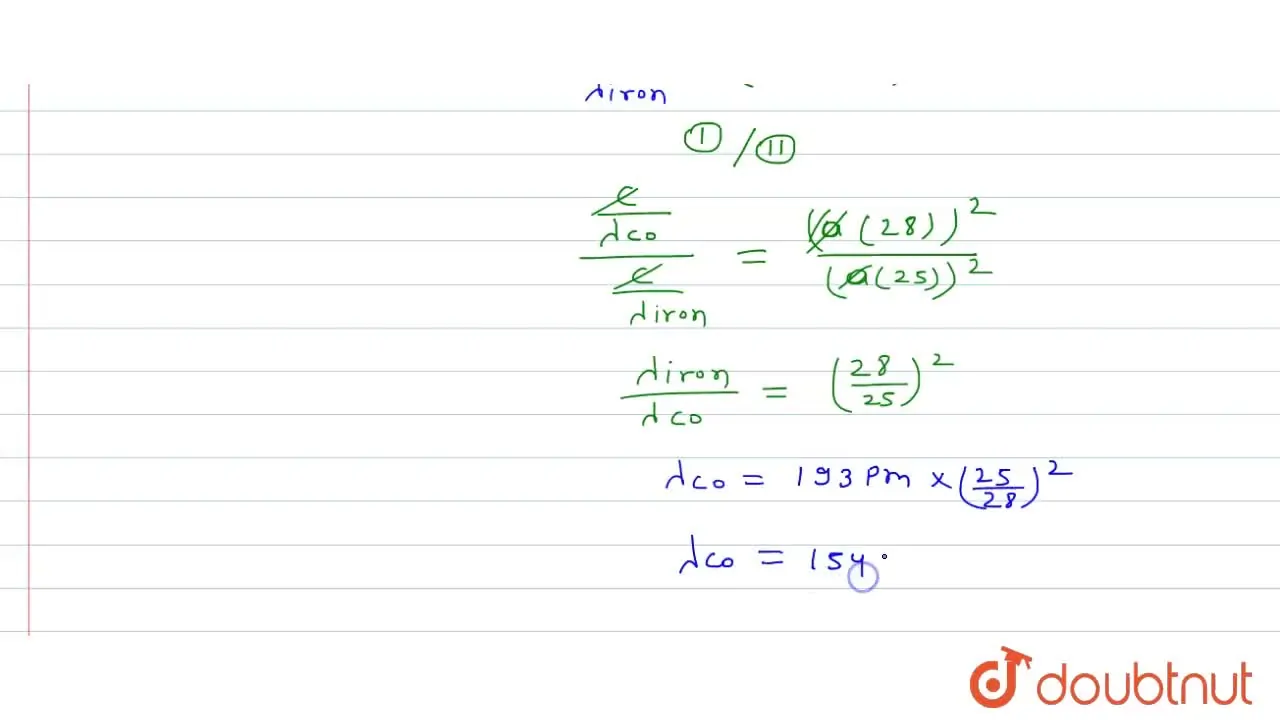 λiron
I / II
c/λco / c/λiron = (a(28))² / (a(25))²
λiron/λco = (28/25)²
λco = 193 pm × (25/28)²
λco = 154.
doubtnut